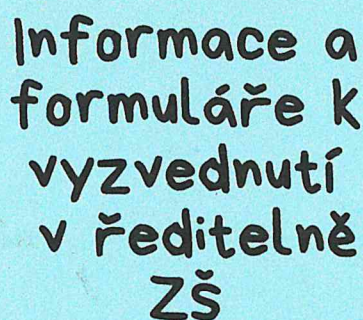 Informace a
formuláře k
vyzvednutí
v ředitelně
ZŠ